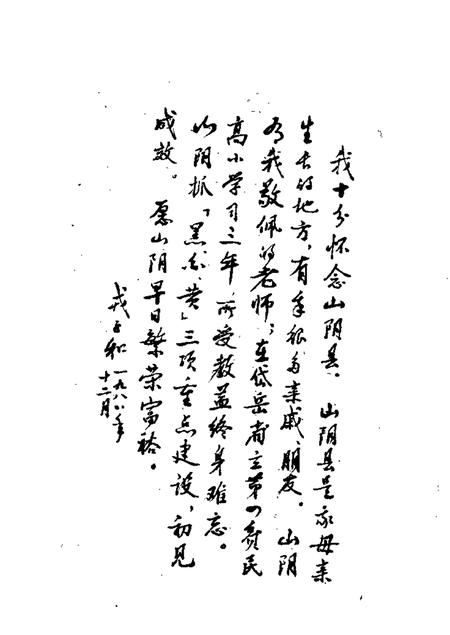 我十分怀念山阴县。山阴县是我母亲
生长的地方，有我很多亲戚、朋友。山阴
有我敬佩的老师；在岱岳省立第四贫民
高小学习三年，所受教益终身难忘。
山阴抓「黑、白、黄」三项重点建设，初见
成效。愿山阴早日繁荣富裕。
戎子和 一九八八年
十二月